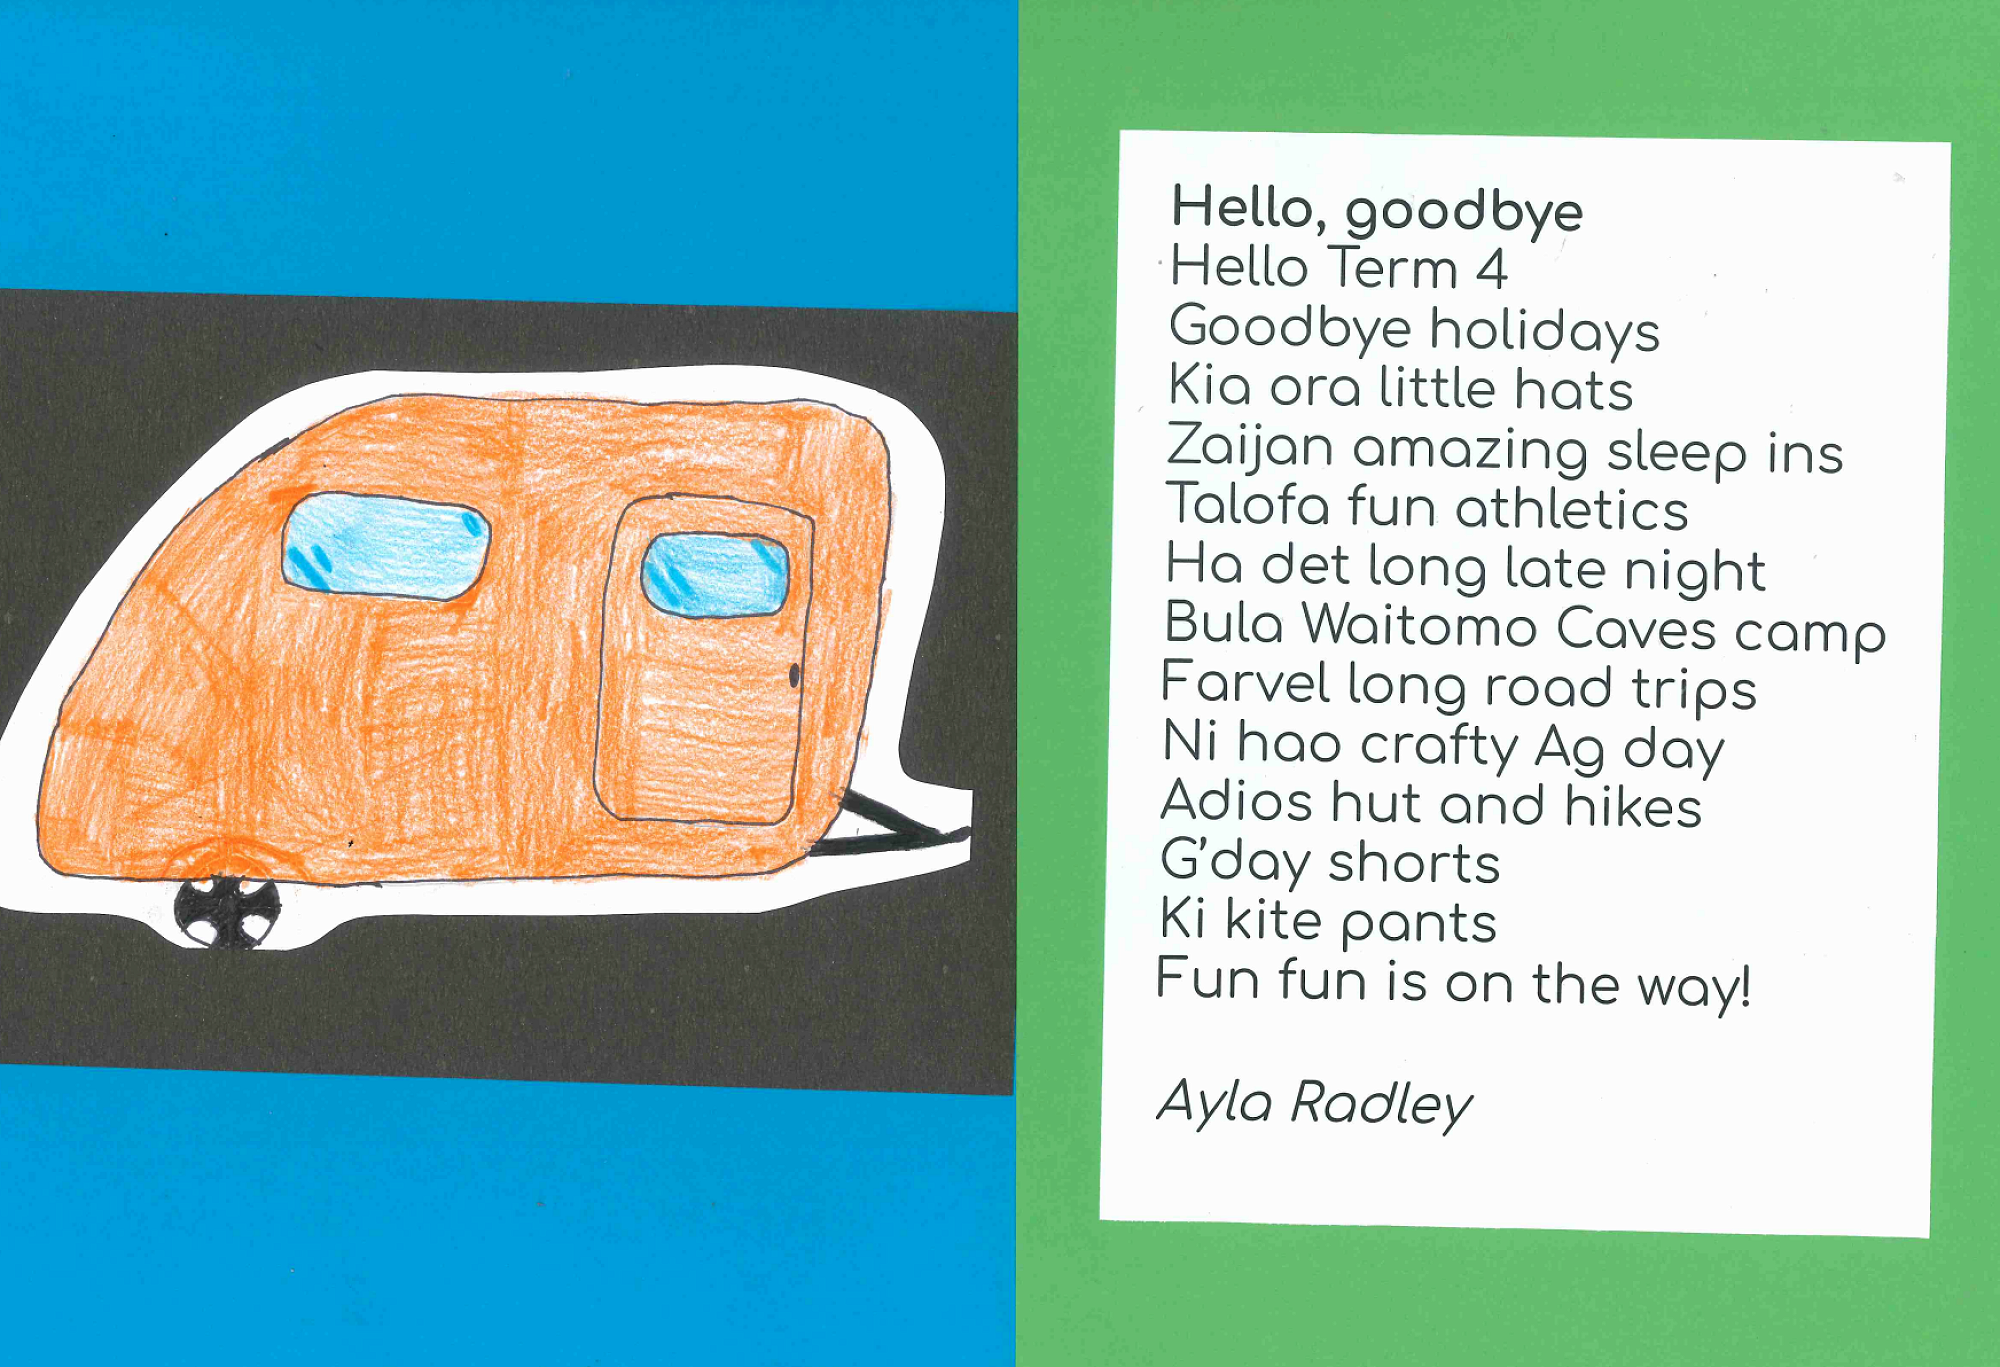 Hello, goodbye
Hello Term 4
Goodbye holidays
Kia ora little hats
Zaijan amazing sleep ins
Talofa fun athletics
Ha det long late night
Bula Waitomo Caves camp
Farvel long road trips
Ni hao crafty Ag day
Adios hut and hikes
G'day shorts
Ki kite pants
Fun fun is on the way!
Ayla Radley